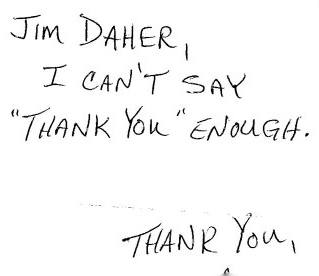 JIM DAHER,
I CAN'T SAY
"THANK YOU" ENOUGH.
THANK YOU,